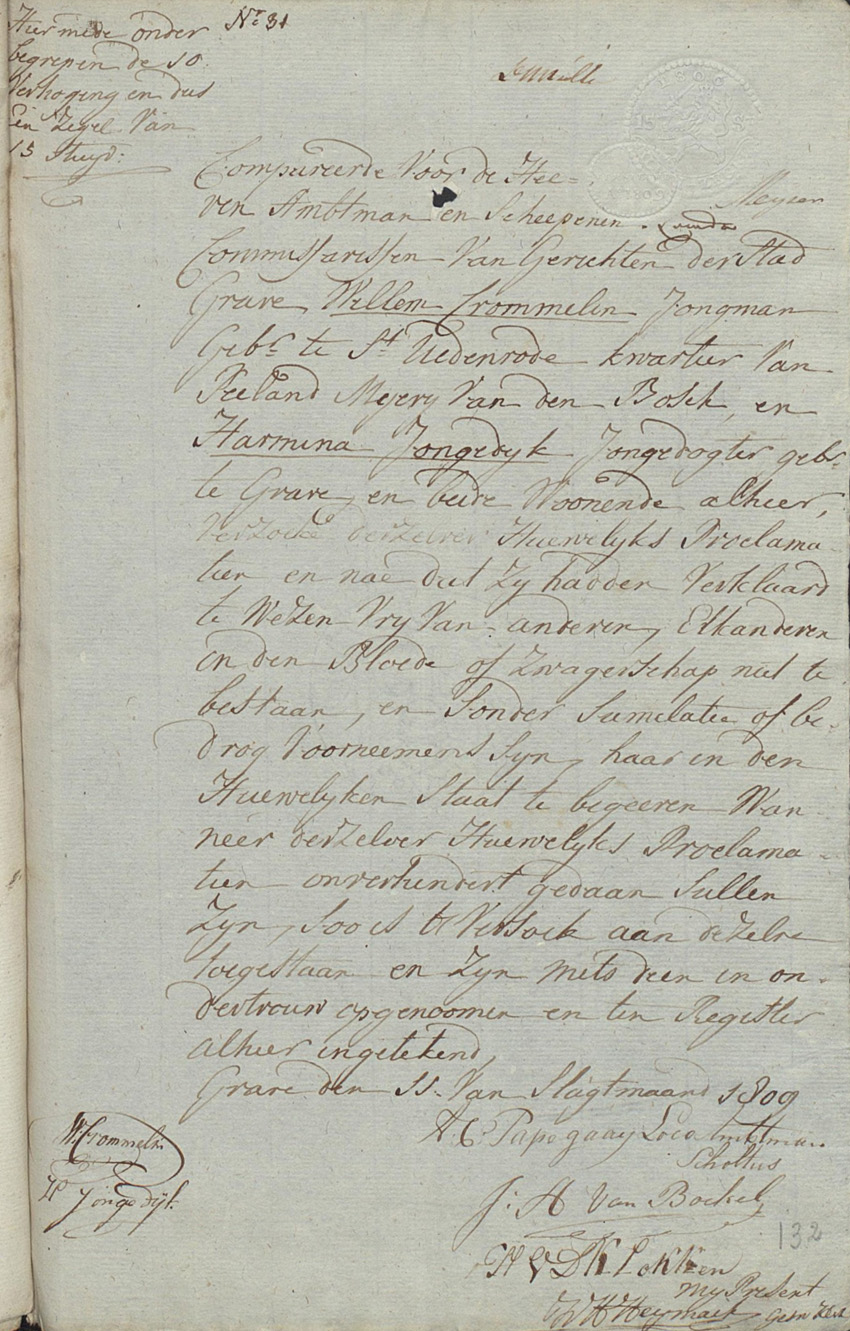 Hiermede onder
begrepen de 10
Verhoging en dus
Een Zegel Van
15 Stuyv:
Nr. 31
Compareerde Voor de Hee=
ren Ambtman en Scheepenen
Commissarissen Van Gerichten der Stad
Grave Willem Crommelin Jongman
Gebr. te St. Uedenrode kwartier Van
Peeland Meyery Van den Bosch, en
Harmina Jongedyk Jongedogter gebr.
te Grave, en beide Woonende alhier,
Verzoeke derzelver Huewelyks Proclama-
tien en nae dat Zy hadden Verklaard
te Wezen Vry Van anderen, Elkanderen
in den Bloede of Zwagerschap niet te
bestaan, en Sonder Simulatie of be-
drog Voorneemens Syn, haar in den
Huewelyken Staat te begeeven Wan
neer derzelver Huewelyks Proclama-
tien onverhindert gedaan Sullen
Zyn, Soo is 't Versoek aan dezelve
toegestaan en Zyn mits deen in on-
dertrouw opgenoomen en ten Register
alhier ingetekend,
Grave den 11. Van Slagtmaand 1809
W: Crommelin
H Jongedijk
A. C. Papegaay Loco Amtman
Scholtus
J: A Van Boekel
H V D Klokken
My Present
Heymack
132